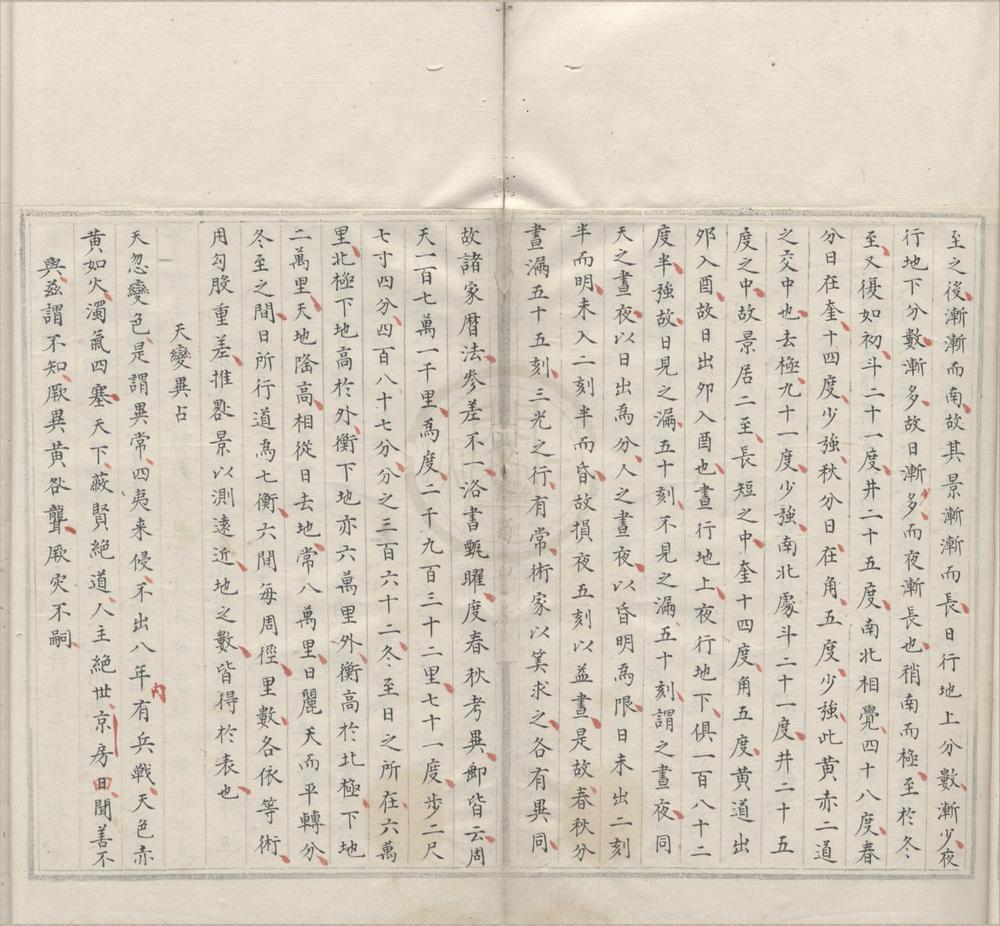 至之後漸漸而南故其景漸漸而長日行地上分數漸少夜
行地下分數漸多故日漸多而夜漸長也稍南而極至於冬
至又復如初斗二十一度井二十五度南北相覺四十八度春
分日在奎十四度少強秋分日在角五度少強此黃赤二道
之交中也去極九十一度少強南北處斗二十一度井二十五
度之中故景居二至長短之中奎十四度角五度黃道出
夘入酉故日出夘入酉也晝行地上夜行地下俱一百八十二
度半強故日見之漏五十刻不見之漏五十刻謂之晝夜同
天之晝夜以日出為分人之晝夜以昏明為限日未出二刻
半而明未入二刻半而昏故損夜五刻以益晝是故春秋分
晝漏五十五刻三光之行有常術家以筭求之各有異同
故諸家曆法參差不一洛書甄曜度春秋考異郵皆云周
天一百七萬一千里為度二千九百三十二里七十一度步二尺
七寸四分四百八十七分分之三百六十二冬至日之所在六萬
里北極下地高於外衡下地亦六萬里外衡高於北極下地
二萬里天地隆高相從日去地常八萬里日麗天而平轉分
冬至之間日所行道為七衡六間每周徑里數各依等術
用勾股重差推晷景以測遠近地之數皆得於表也
天變異占
天忽變色是謂異常四夷来侵不出八年有兵戰天色赤
黃如火濁氣四塞天下蔽賢絕道人主絕世京房曰聞善不
與茲謂不知厥異黃咎聾厥灾不嗣